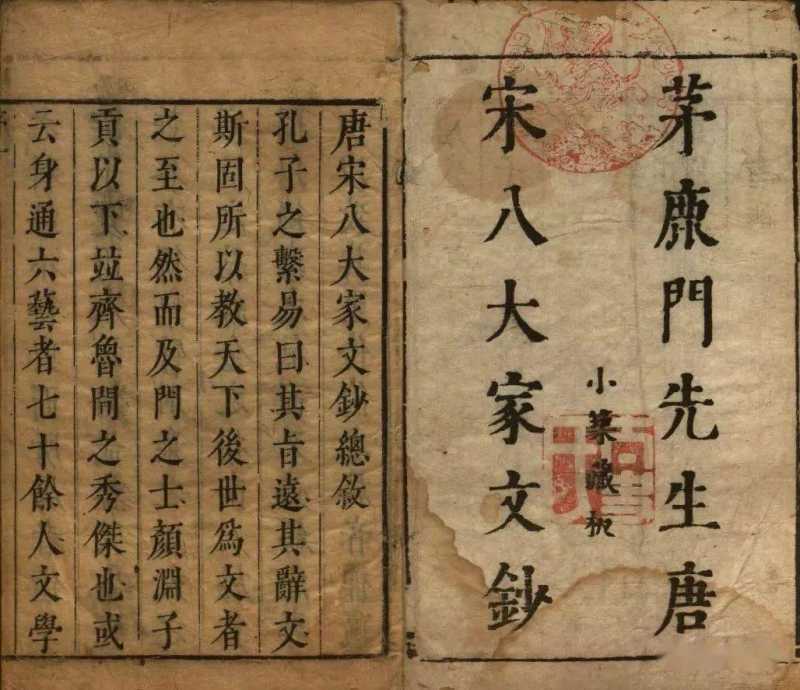 茅鹿門先生唐
宋八大家文鈔
小築藏板
唐宋八大家文鈔總敘
孔子之繫易曰其旨遠其辭文
斯固所以教天下後世為文者
之至也然而及門之士顏淵子
貢以下竝齊魯間之秀傑也或
云身通六藝者七十餘人文學